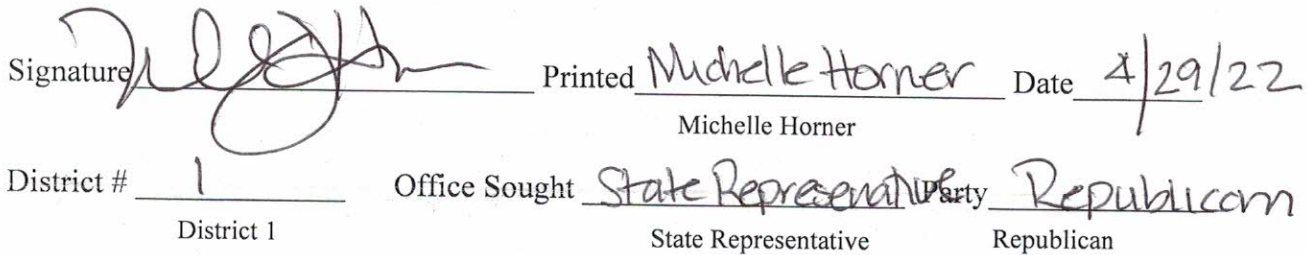 Signature Printed Michelle Horner Date 4/29/22
Michelle Horner
District # 1 Office Sought State Represenative Party Republican
District 1 State Representative Republican